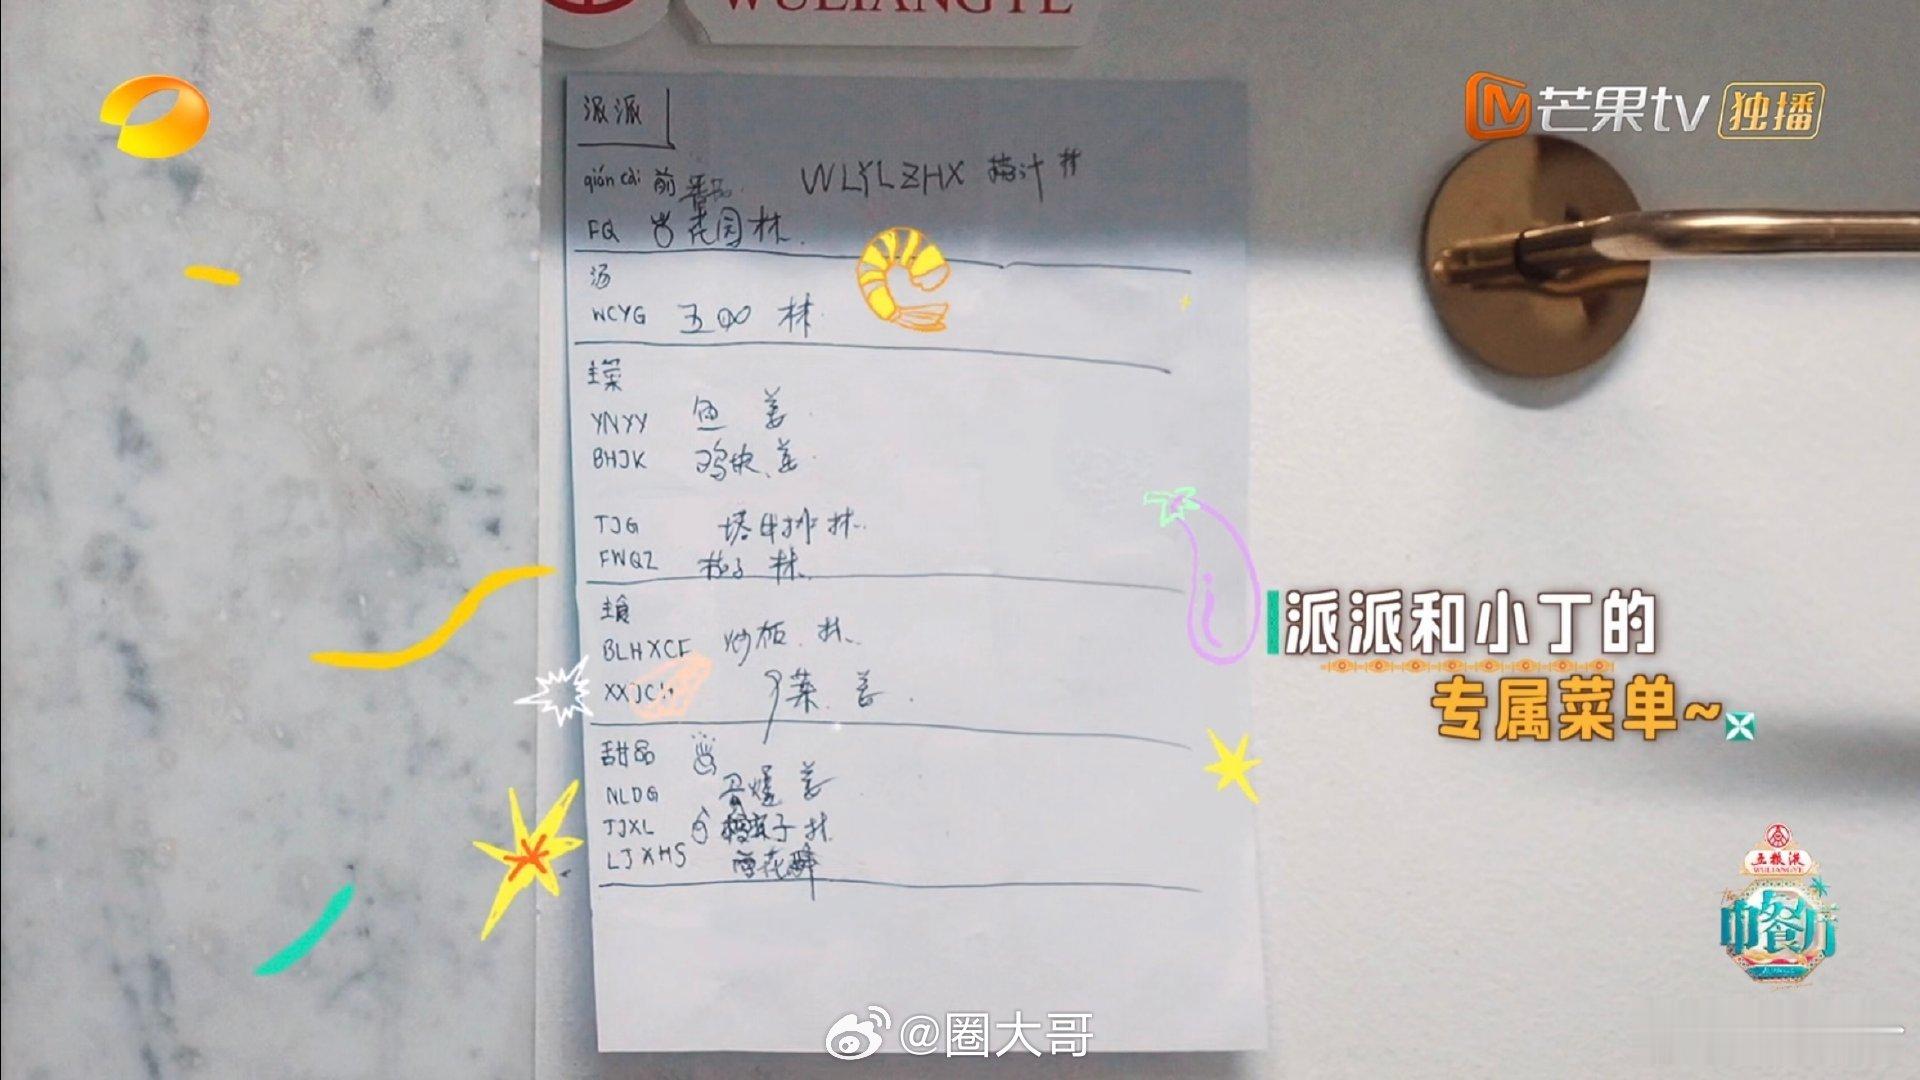 WULIANGYE
芒果tv 独播
派派
qián cài 前
WLYLZHX 茄汁 林
FQ 花园 林
汤
WCYG 五 林
主菜
YNYY 鱼 姜
BHJK 鸡块 姜
TJG 塔牛排 林
FWQZ 茄子 林
主食
BLHXCF 炒 林
XXJC 菜 姜
甜品
NLDG 姜
TJXL 子 林
LJXHS 雪花酥
派派和小丁的
专属菜单~
五粮液
WULIANGYE
中餐厅
@圈大哥